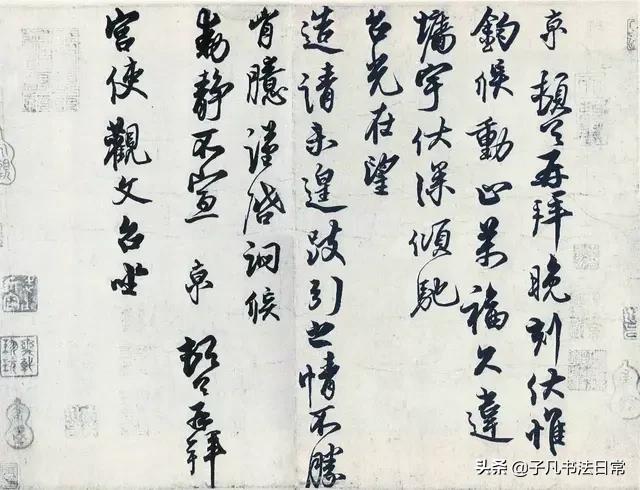 京 頓首再拜晚刻伏惟
鈞候動止萬福久違
墉宇伏深傾馳
台光在望
造請未遑跂引之情不勝
胷臆謹啓詗候
動靜不宣 京 頓首再拜
宮使觀文台坐
头条 @子凡书法日常